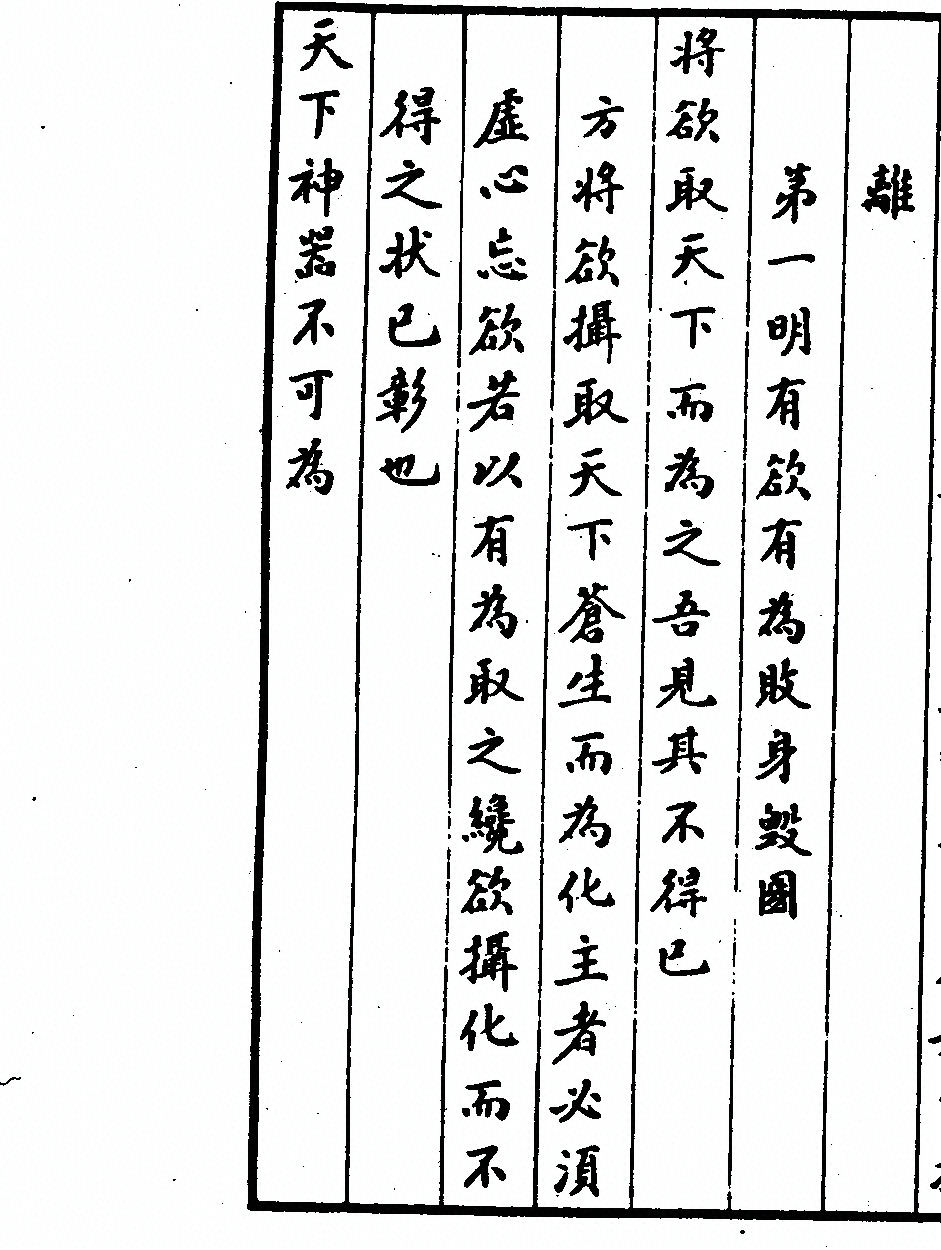 離
第一明有欲有為敗身毀國
將欲取天下而為之吾見其不得已
方將欲攝取天下蒼生而為化主者必須
虛心忘欲若以有為取之纔欲攝化而不
得之狀已彰也
天下神器不可為